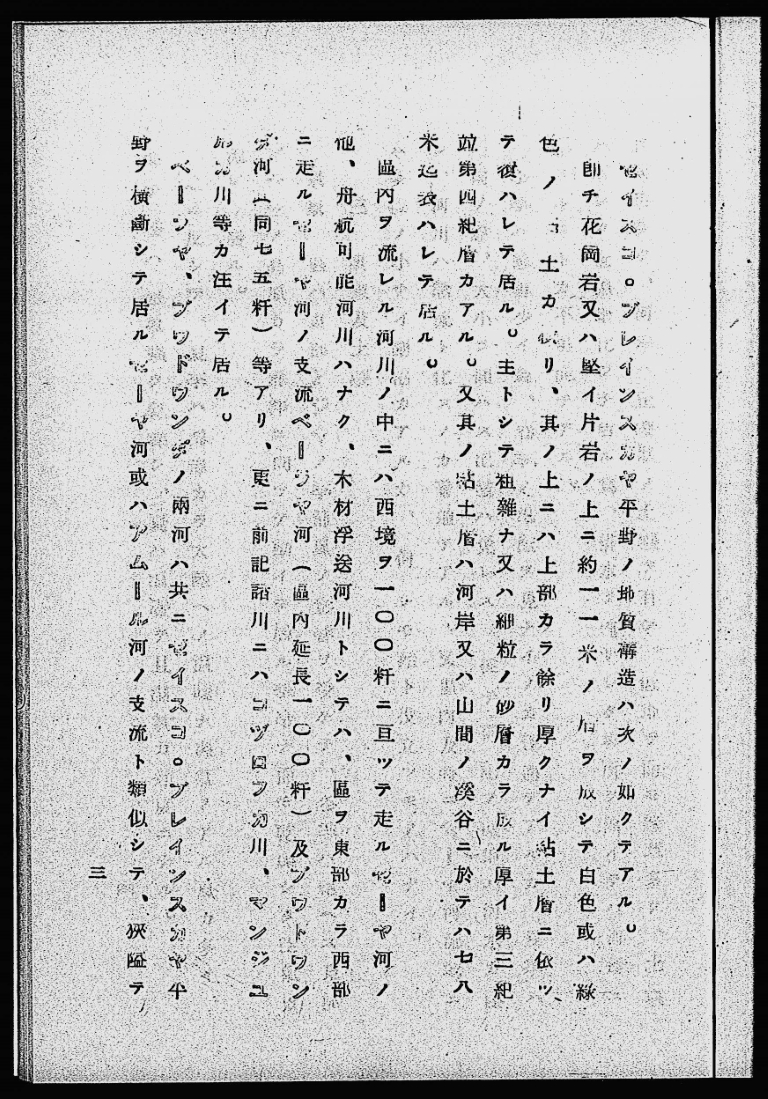 ゼイスコ。ブレインスカヤ平野ノ地質構造ハ次ノ如クテアル。
即チ花岡岩又ハ堅イ片岩ノ上ニ約一一米ノ層ヲ成シテ白色或ハ緑
色ノ土カ リ、其ノ上ニハ上部カラ餘リ厚クナイ粘土層ニ依ツ
テ復ハレテ居ル。主トシテ粗雑ナ又ハ細粒ノ砂層カラ成ル厚イ第三紀
並第四紀層カアル。又其ノ粘土層ハ河岸又ハ山間ノ溪谷ニ於テハ七八
米迄表ハレテ居ル。
區内ヲ流レル河川ノ中ニハ西境ヲ一〇〇粁ニ亘ツテ走ルゼーヤ河ノ
他、舟航可能河川ハナク、木材浮送河川トシテハ、區ヲ東部カラ西部
ニ走ルゼーヤ河ノ支流ベーリヤ河(區内延長一〇〇粁)及ブウドウン
ダ河(同七五粁)等アリ、更ニ前記諸川ニハコヅロフカ川、マンジユ
川等カ注イテ居ル。
ベーリヤ、ブウドウンダノ兩河ハ共ニゼイスコ。ブレインスカヤ平
野ヲ横斷シテ居ルゼーヤ河或ハアムール河ノ支流ト類似シテ、狹隘テ
三